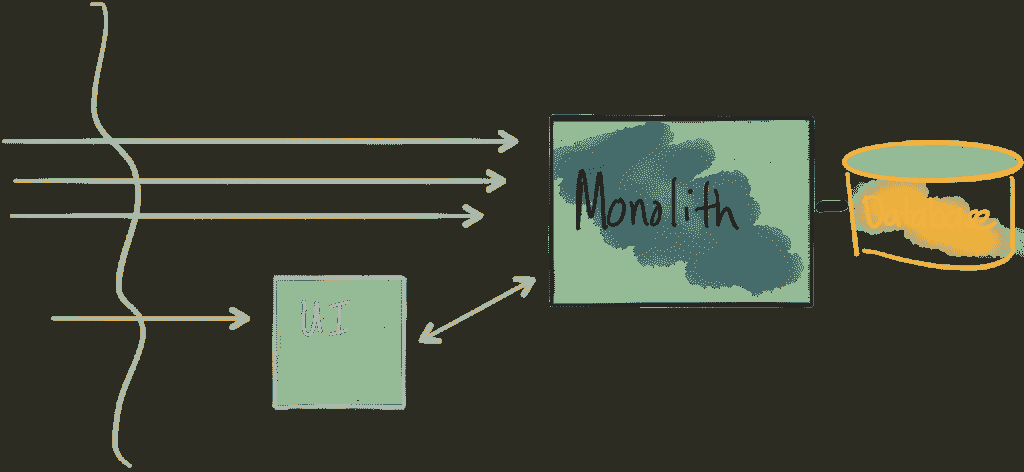 Monolith
Database
UI